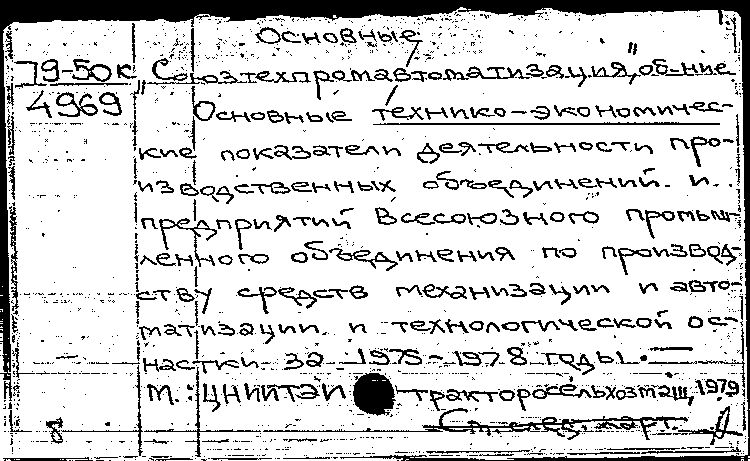 Основные
79-50к "Союзтехпромавтоматизация", об-ние
4969
Основные технико-экономичес-
кие показатели деятельности про-
изводственных объединений и
предприятий Всесоюзного промыш-
ленного объединения по производ-
ству средств механизации и авто-
матизации и технологической ос-
настки за 1975-1978 годы. —
М.: ЦНИИТЭИ тракторосельхозмаш, 1979
См. след. карт.
8